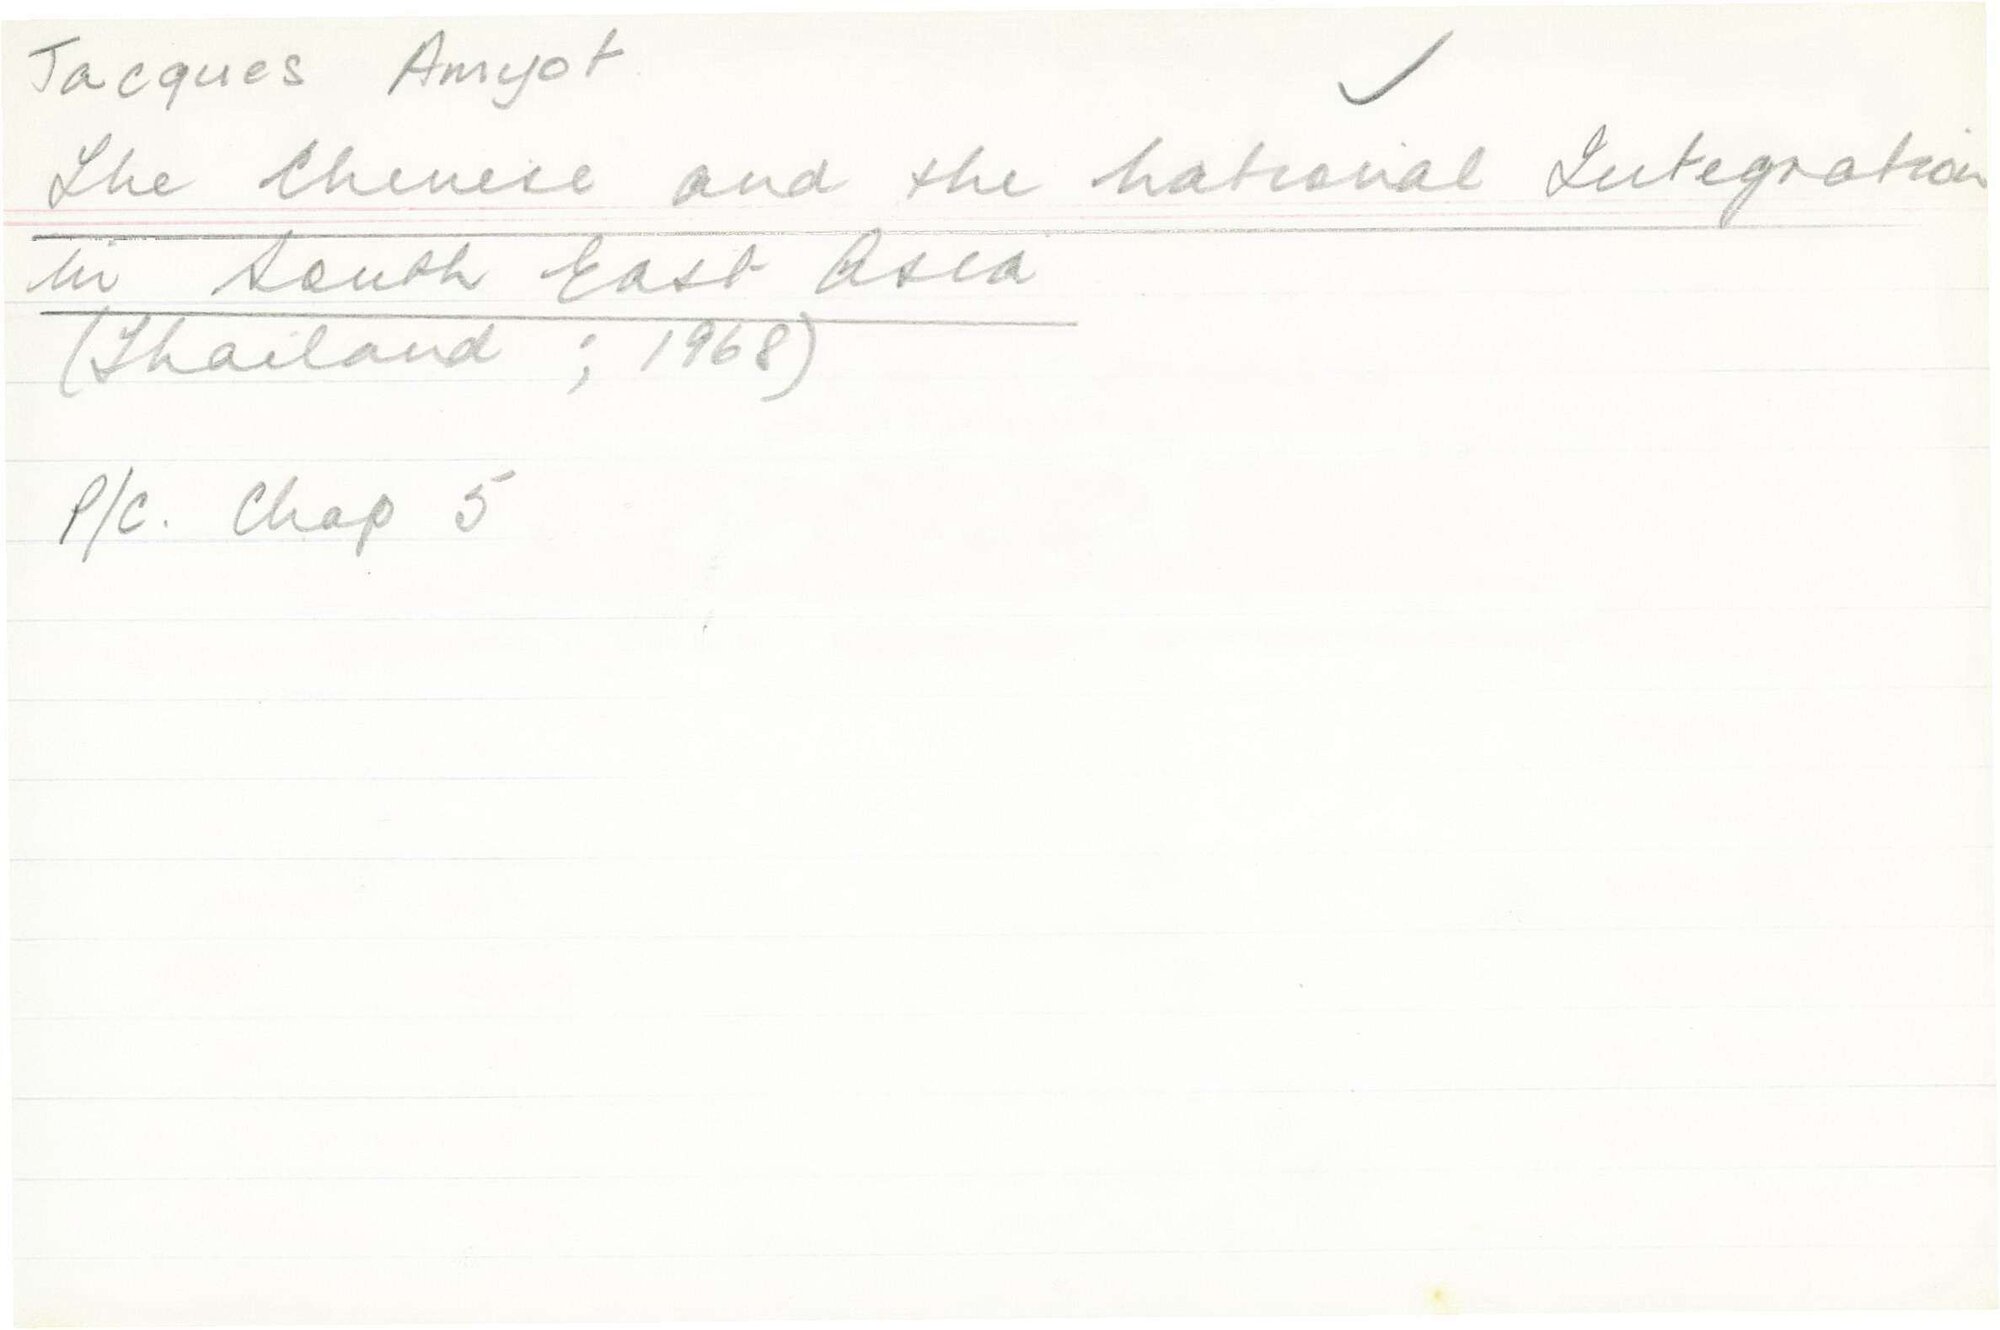 Jacques Amyot ✓
The Chinese and the national Integration
in South East Asia
(Thailand ; 1968)
P/c. Chap 5